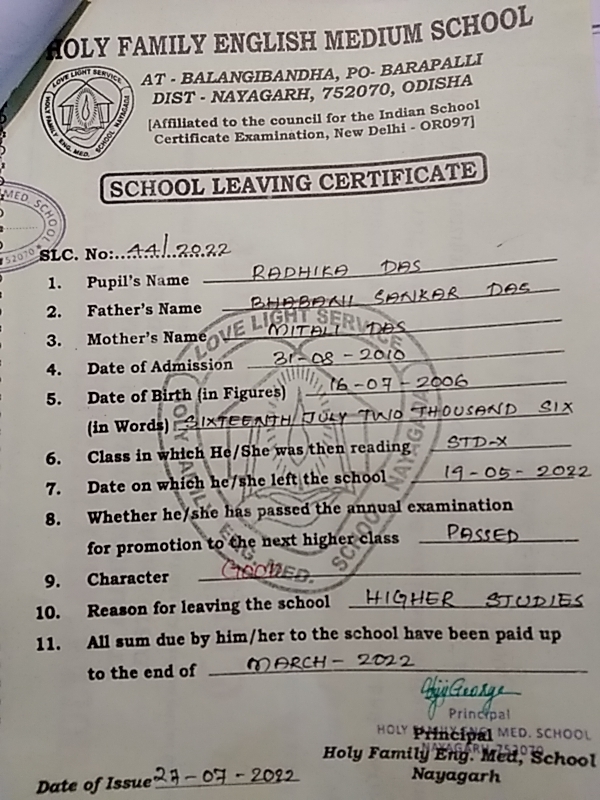 HOLY FAMILY ENGLISH MEDIUM SCHOOL
AT - BALANGIBANDHA, PO- BARAPALLI
DIST - NAYAGARH, 752070, ODISHA
[Affiliated to the council for the Indian School
Certificate Examination, New Delhi - OR097]
LOVE LIGHT SERVICE
HOLY FAMILY ENG. MED. SCHOOL NAYAGARH
SCHOOL LEAVING CERTIFICATE
MED. SCHOOL
752070
SLC. No:..44/2022
1. Pupil's Name RADHIKA DAS
2. Father's Name BHABANI SANKAR DAS
3. Mother's Name MITALI DAS
4. Date of Admission 31-08-2010
5. Date of Birth (in Figures) 16-07-2006
(in Words) SIXTEENTH JULY TWO THOUSAND SIX
6. Class in which He/She was then reading STD-X
7. Date on which he/she left the school 19-05-2022
8. Whether he/she has passed the annual examination
for promotion to the next higher class PASSED
9. Character GOOD
10. Reason for leaving the school HIGHER STUDIES
11. All sum due by him/her to the school have been paid up
to the end of MARCH-2022
LOVE LIGHT SERVICE
HOLY FAMILY ENG. MED. SCHOOL NAYAGARH
George
Principal
HOLY FAMILY ENG. MED. SCHOOL
Principal
NAYAGARH-752070
Holy Family Eng. Med, School
Nayagarh
Date of Issue 27-07-2022